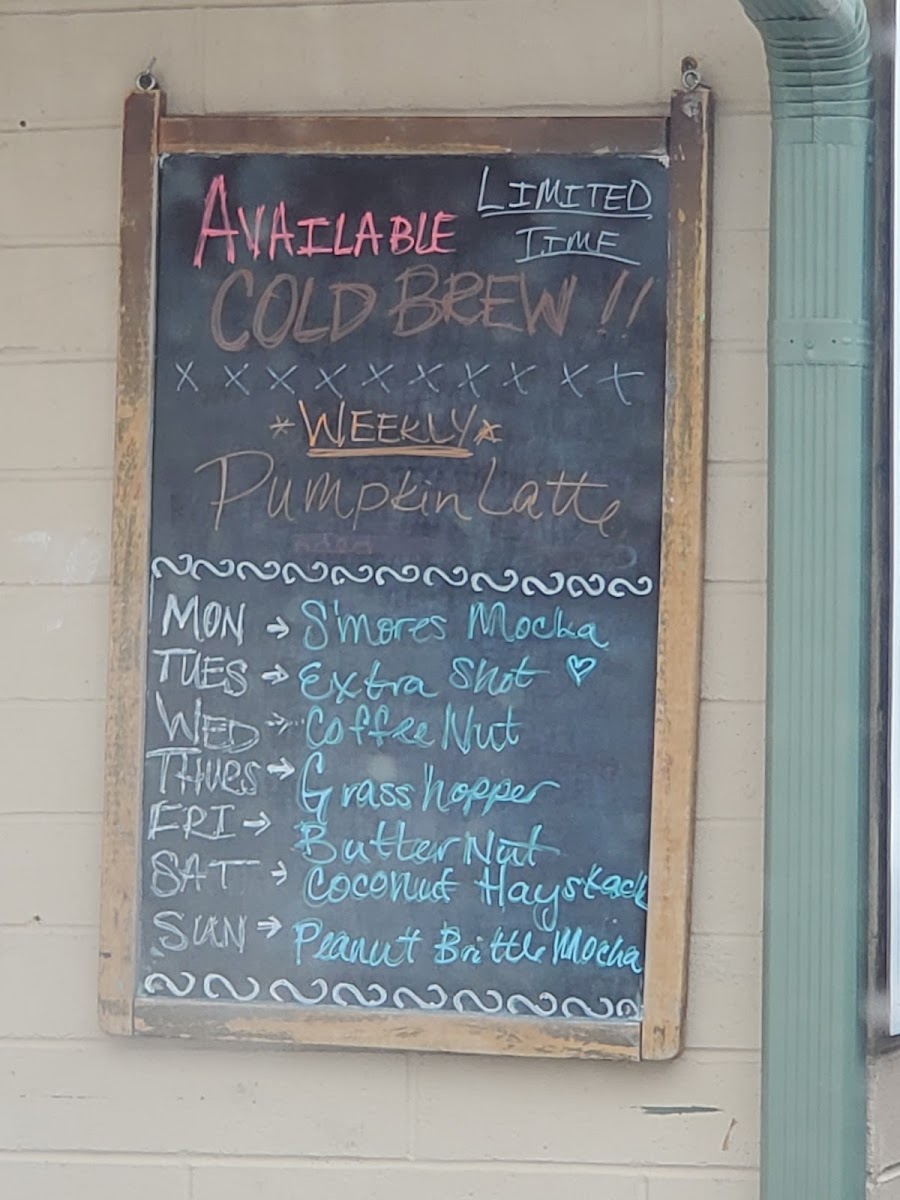 AVAILABLE LIMITED TIME
COLD BREW!!
x x x x x x x x x x
*WEEKLY*
Pumpkin Latte
MON → S'mores Mocha
TUES → Extra Shot ♡
WED → Coffee Nut
THURS → Grasshopper
FRI → Butter Nut
SAT → Coconut Haystack
SUN → Peanut Brittle Mocha